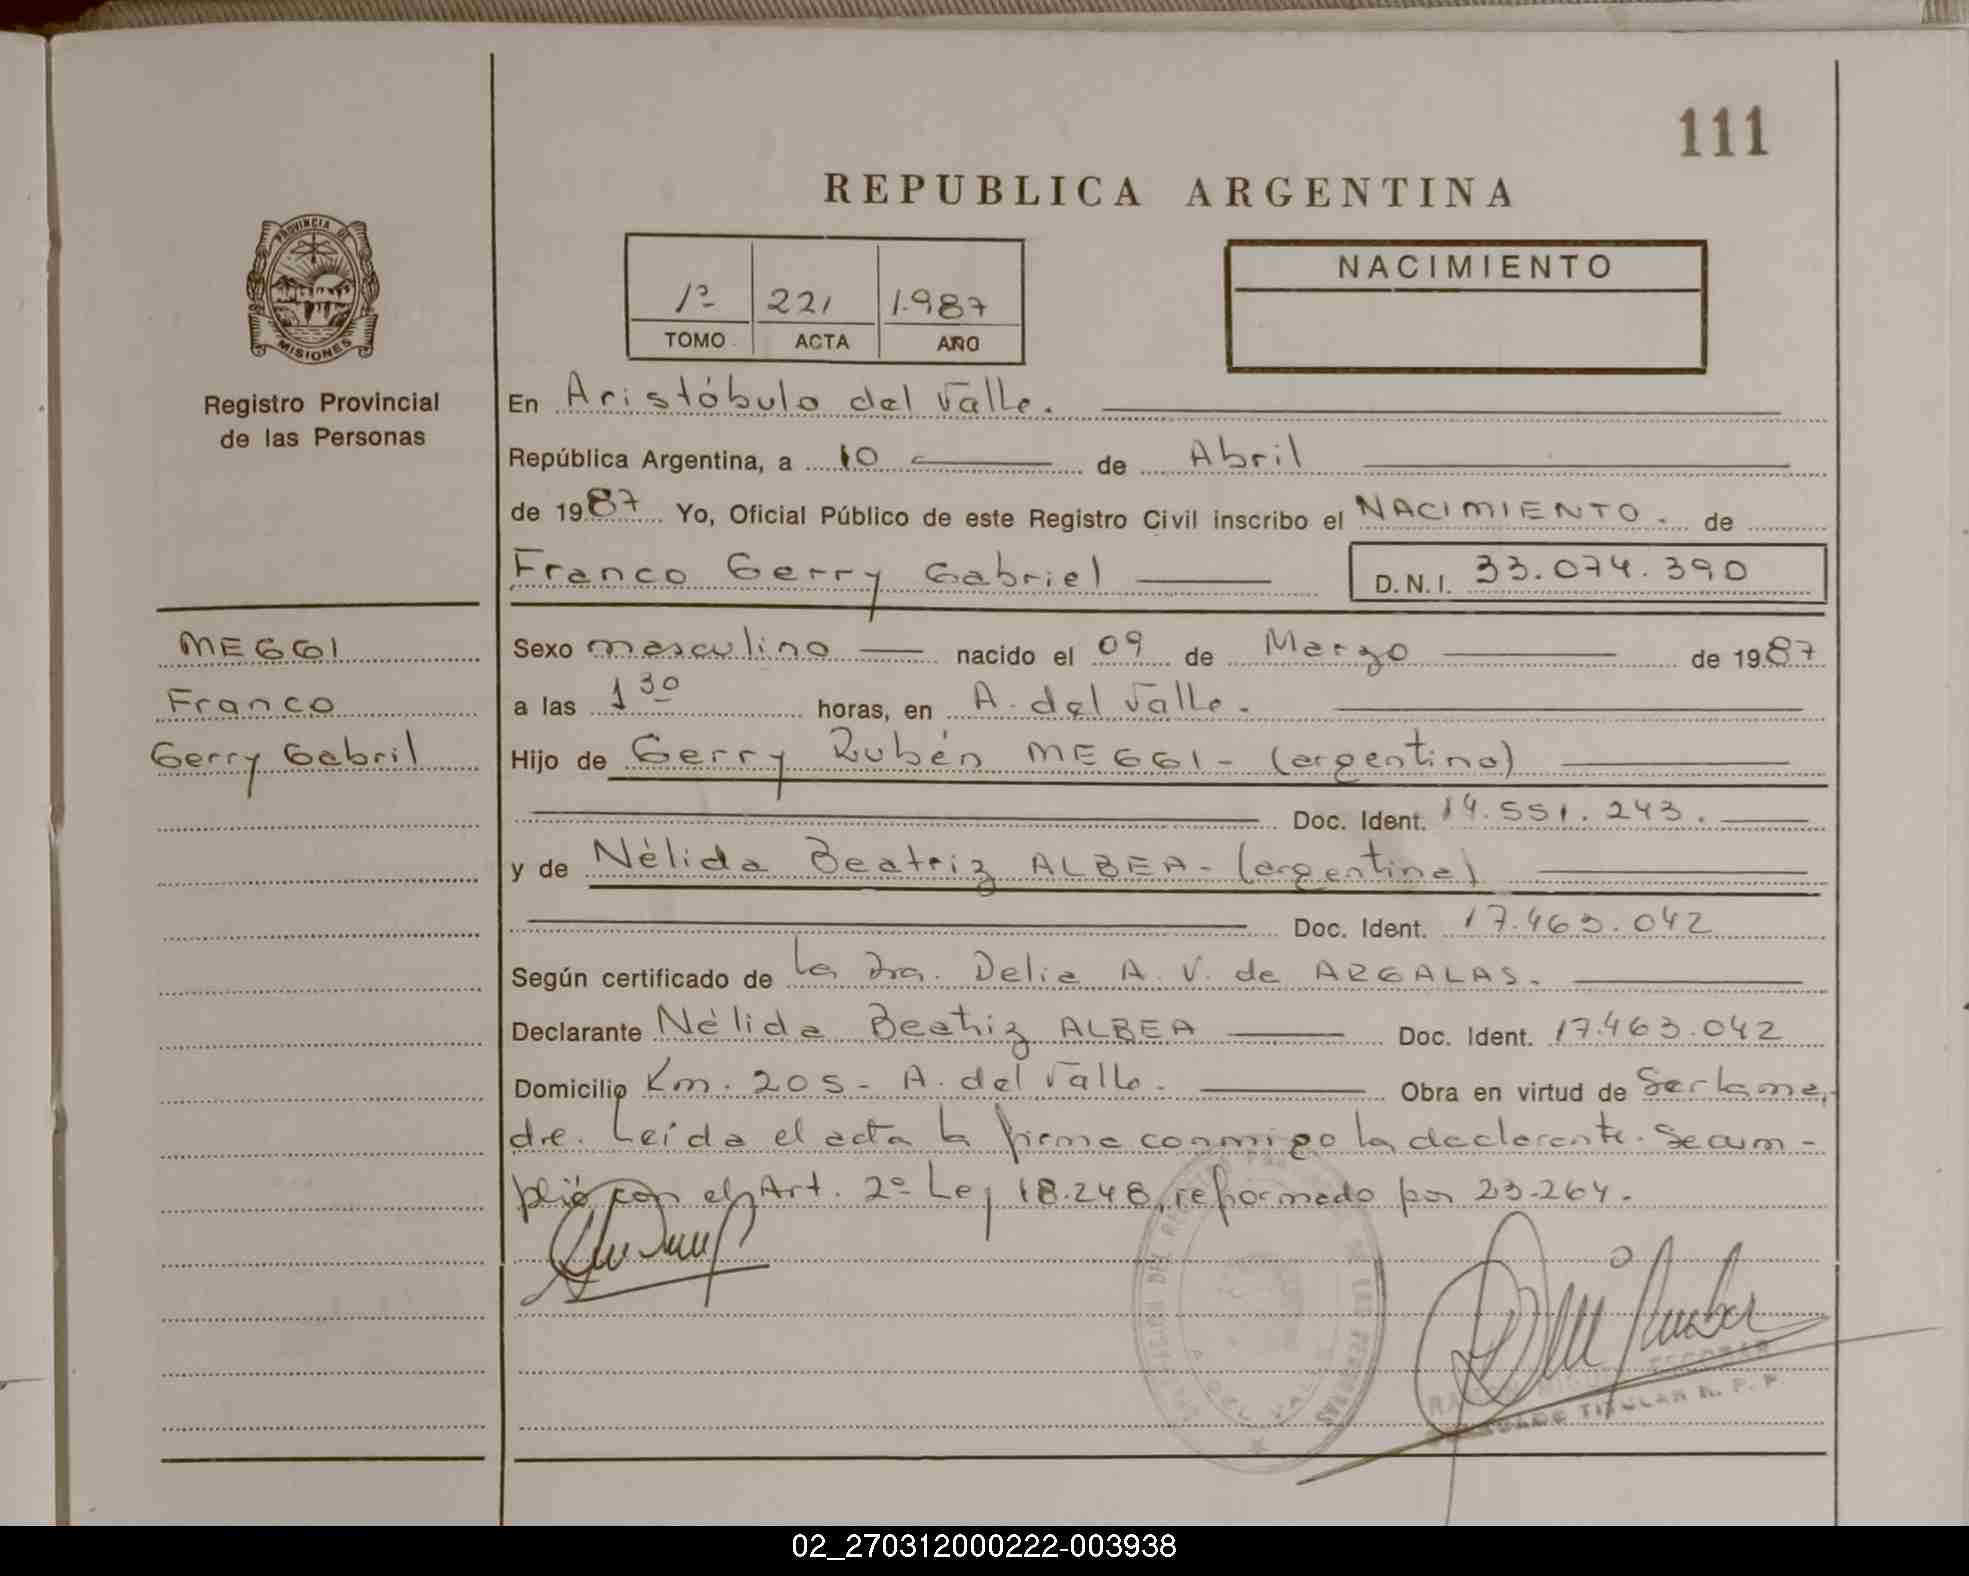 111
REPUBLICA ARGENTINA
PROVINCIA DE
MISIONES
Registro Provincial
de las Personas
1º 221 1.987
TOMO ACTA AÑO
NACIMIENTO
En Aristóbulo del Valle.
República Argentina, a 10 de Abril
de 1987 Yo, Oficial Público de este Registro Civil inscribo el NACIMIENTO. de
Franco Gerry Gabriel D.N.I. 33.074.390
MEGGI
Franco
Gerry Gabril
Sexo masculino nacido el 09 de Marzo de 1987
a las 1 30 horas, en A. del Valle.
Hijo de Gerry Rubén MEGGI - (argentino)
Doc. Ident. 14.551.243.
y de Nélida Beatriz ALBEA - (argentina)
Doc. Ident. 17.463.042
Según certificado de la Dra. Delia A. V. de ARGALAS.
Declarante Nélida Beatriz ALBEA Doc. Ident. 17.463.042
Domicilio Km. 205 - A. del Valle. Obra en virtud de Ser la ma-
dre. Leída el acta la firma conmigo la declarante. Se cum-
plió con el Art. 2º Ley 18.248, reformado por 23.264.
ESCOBAR
TITULAR R. P. P.
02_270312000222-003938